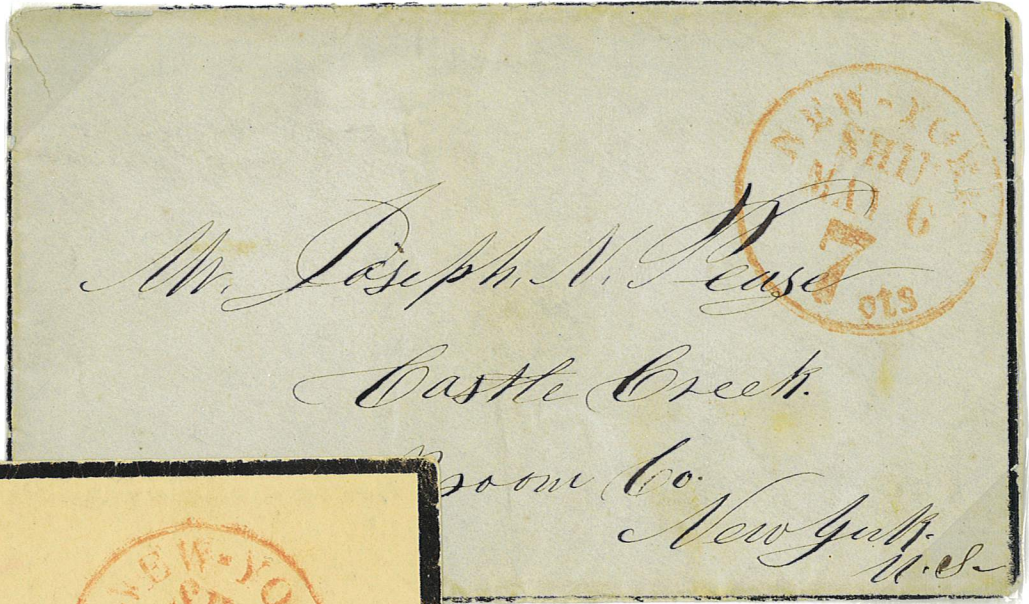 NEW-YORK
SHIP
MAY 6
7
cts
Mr. Joseph. N. Pease
Castle Creek.
Broom Co.
New York.
U.S.
NEW-YO